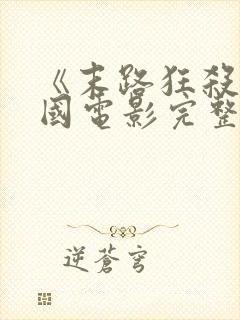 《末路狂殺
國電影完整
逆蒼穹